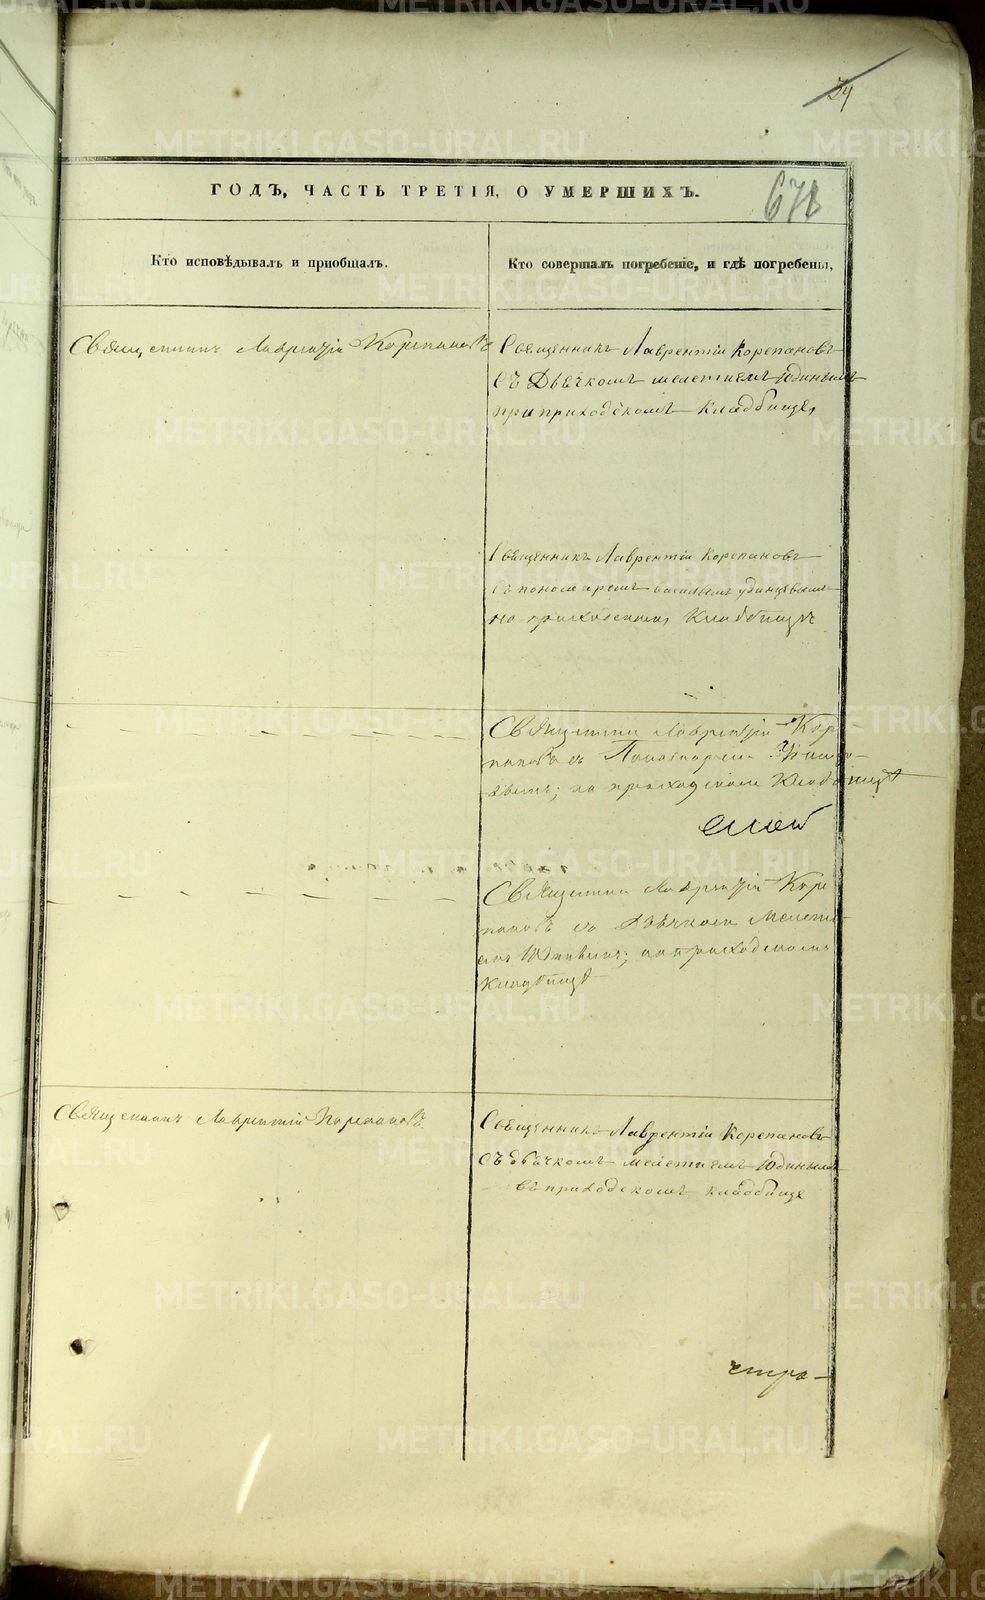 34
ГОДЪ, ЧАСТЬ ТРЕТІЯ, О УМЕРШИХЪ.
671
Кто исповѣдывалъ и пріобщалъ.
Кто совершалъ погребеніе, и гдѣ погребены,
Священникъ Лаврентій Корепановъ
Священникъ Лаврентіи Корепановъ
съ Дьячкомъ мелетиемъ Юдинымъ
при приходскомъ кладбище,
Священникъ Лаврентіи Корепановъ
съ пономаремъ василиемъ удинцевымъ
на приходскомъ Кладбищѣ
Священникъ Лаврентій Коре
пановъ съ Пономаремъ
на приходскомъ Кладбищѣ
Священникъ Лаврентій Коре
пановъ съ Дьячкомъ Мелети
емъ Юдинымъ; на приходскомъ
Кладбищѣ
Священникъ Лаврентій Корепановъ
Священникъ Лаврентіи Корепановъ
съ дьячкомъ мелетиемъ Юдинымъ
въ приходскомъ кладбище
METRIKI.GASO-URAL.RU